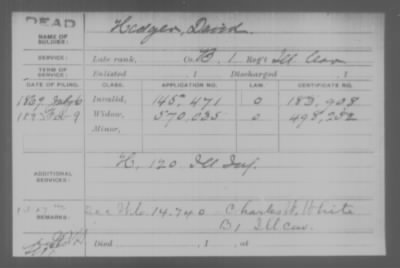 DEAD
NAME OF SOLDIER: Hedger, David.
SERVICE: Late rank, Co. B, 1 Reg't Ill Cav
TERM OF SERVICE: Enlisted , 1 Discharged , 1
DATE OF FILING. CLASS. APPLICATION NO. LAW. CERTIFICATE NO.
1869 July 6 Invalid, 145,471 0 183,908
1893 Feb 9 Widow, 570,035 0 498,252
Minor,
ADDITIONAL SERVICES: H, 120 Ill Inf.
REMARKS: 14.740 Charles W. White
B 1 Ill cav.
Died , 1 , at